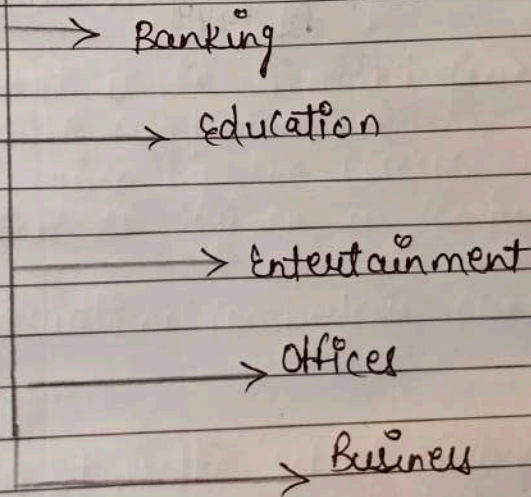 → Banking
→ Education
→ Entertainment
→ Offices
→ Business